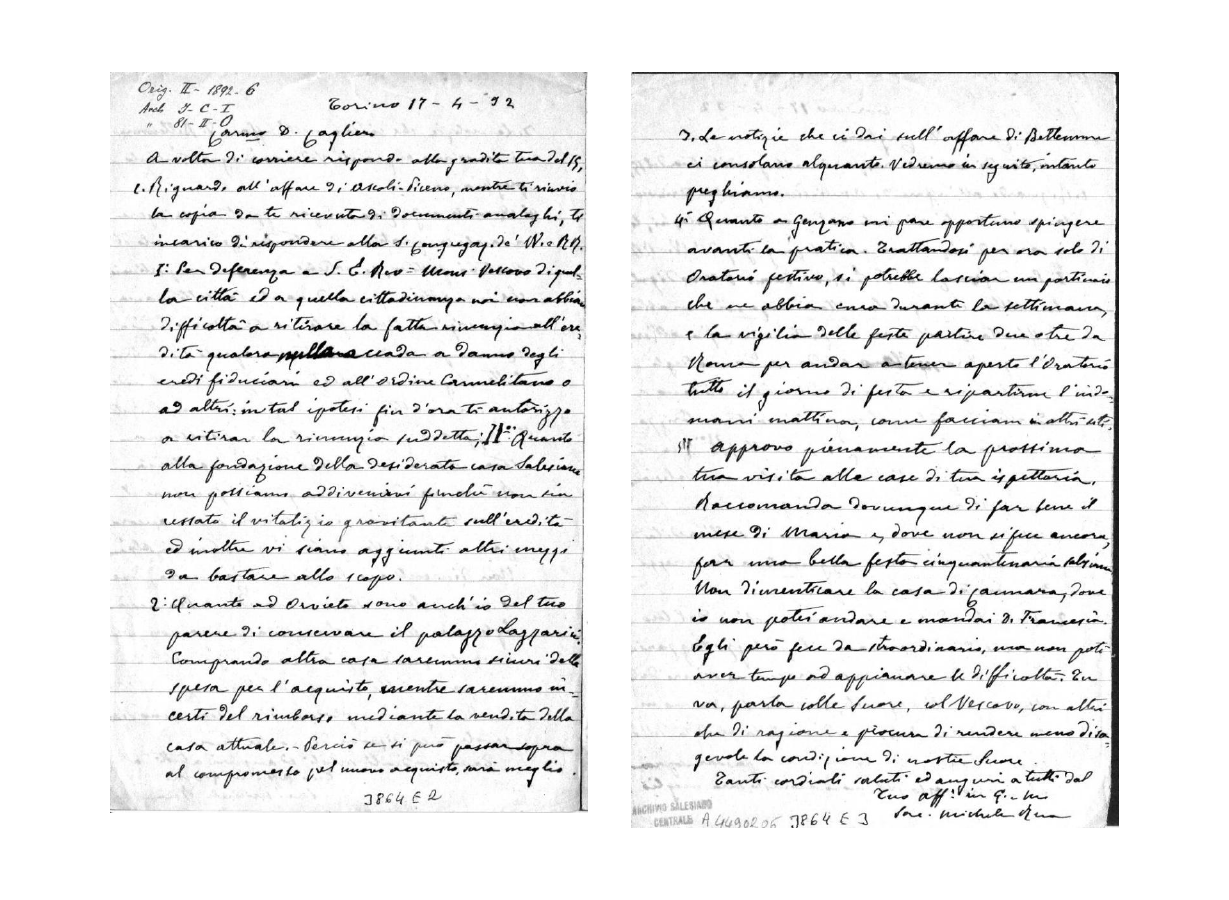 Orig. II - 1892 - 6
Arch J - C - I
" 81 - II - O
Torino 17 - 4 - 92
Carmo D. Cagliero
A volta di corriere rispondo alla gradita tua del 15,
1. Riguardo all'affare di Ascoli-Piceno, mentre ti rinvio
la copia da te ricevuta di documenti analoghi, ti
incarico di rispondere alla S. Congregaz. de' VV. e RR.
I: Per deferenza a S. E. Rev= Mons. Vescovo di quel-
la città ed a quella cittadinanza noi non abbiam
difficoltà a ritirare la fatta rinunzia all'ere-
dità qualora nulla accada a danno degli
eredi fiduciari ed all'Ordine Carmelitano o
ad altri: in tal ipotesi fin d'ora ti autorizzo
a ritirar la rinunzia suddetta; II° Quanto
alla fondazione della desiderata casa Salesiana
non possiamo addivenirvi finchè non sia
cessato il vitalizio gravitante sull'eredità
ed inoltre vi siano aggiunti altri mezzi
da bastare allo scopo.
2: Quanto ad Orvieto sono anch'io del tuo
parere di conservare il palazzo Lazzarini.
Comprando altra casa saremmo sicuri della
spesa per l'acquisto, mentre saremmo in-
certi del rimborso mediante la vendita della
casa attuale. - Perciò se si può passar sopra
al compromesso pel nuovo acquisto, sarà meglio.
3864 E 2
3. Le notizie che ci dai sull'affare di Betlemme
ci consolano alquanto. Vedremo in seguito, intanto
preghiamo.
4° Quanto a Genzano mi pare opportuno spingere
avanti la pratica. Trattandosi per ora solo di
Oratorio festivo, si potrebbe lasciar un portinaio
che ne abbia cura durante la settimana,
e la vigilia delle feste partire due o tre da
Roma per andar a tener aperto l'Oratorio
tutto il giorno di festa e ripartirne l'indo-
mani mattina, come facciam in altri siti.
5° Approvo pienamente la prossima
tua visita alle case di tua ispettoria.
Raccomanda dovunque di far bene il
mese di Maria e, dove non si fece ancora,
far una bella festa cinquantenaria salesiana
Non dimenticare la casa di Cannara, dove
io non potei andare e mandai D. Francesia.
Egli però fece da straordinario, ma non potè
aver tempo ad appianare le difficoltà. Tu
va, parla colle Suore, col Vescovo, con altri
che di ragione e procura di rendere meno disa-
gevole la condizione di nostre Suore.
Tanti cordiali saluti ed auguri a tutti dal
Tuo aff.° in G. e M.
Sac. Michele Rua
ARCHIVIO SALESIANO
CENTRALE A4490206 3864 E 3